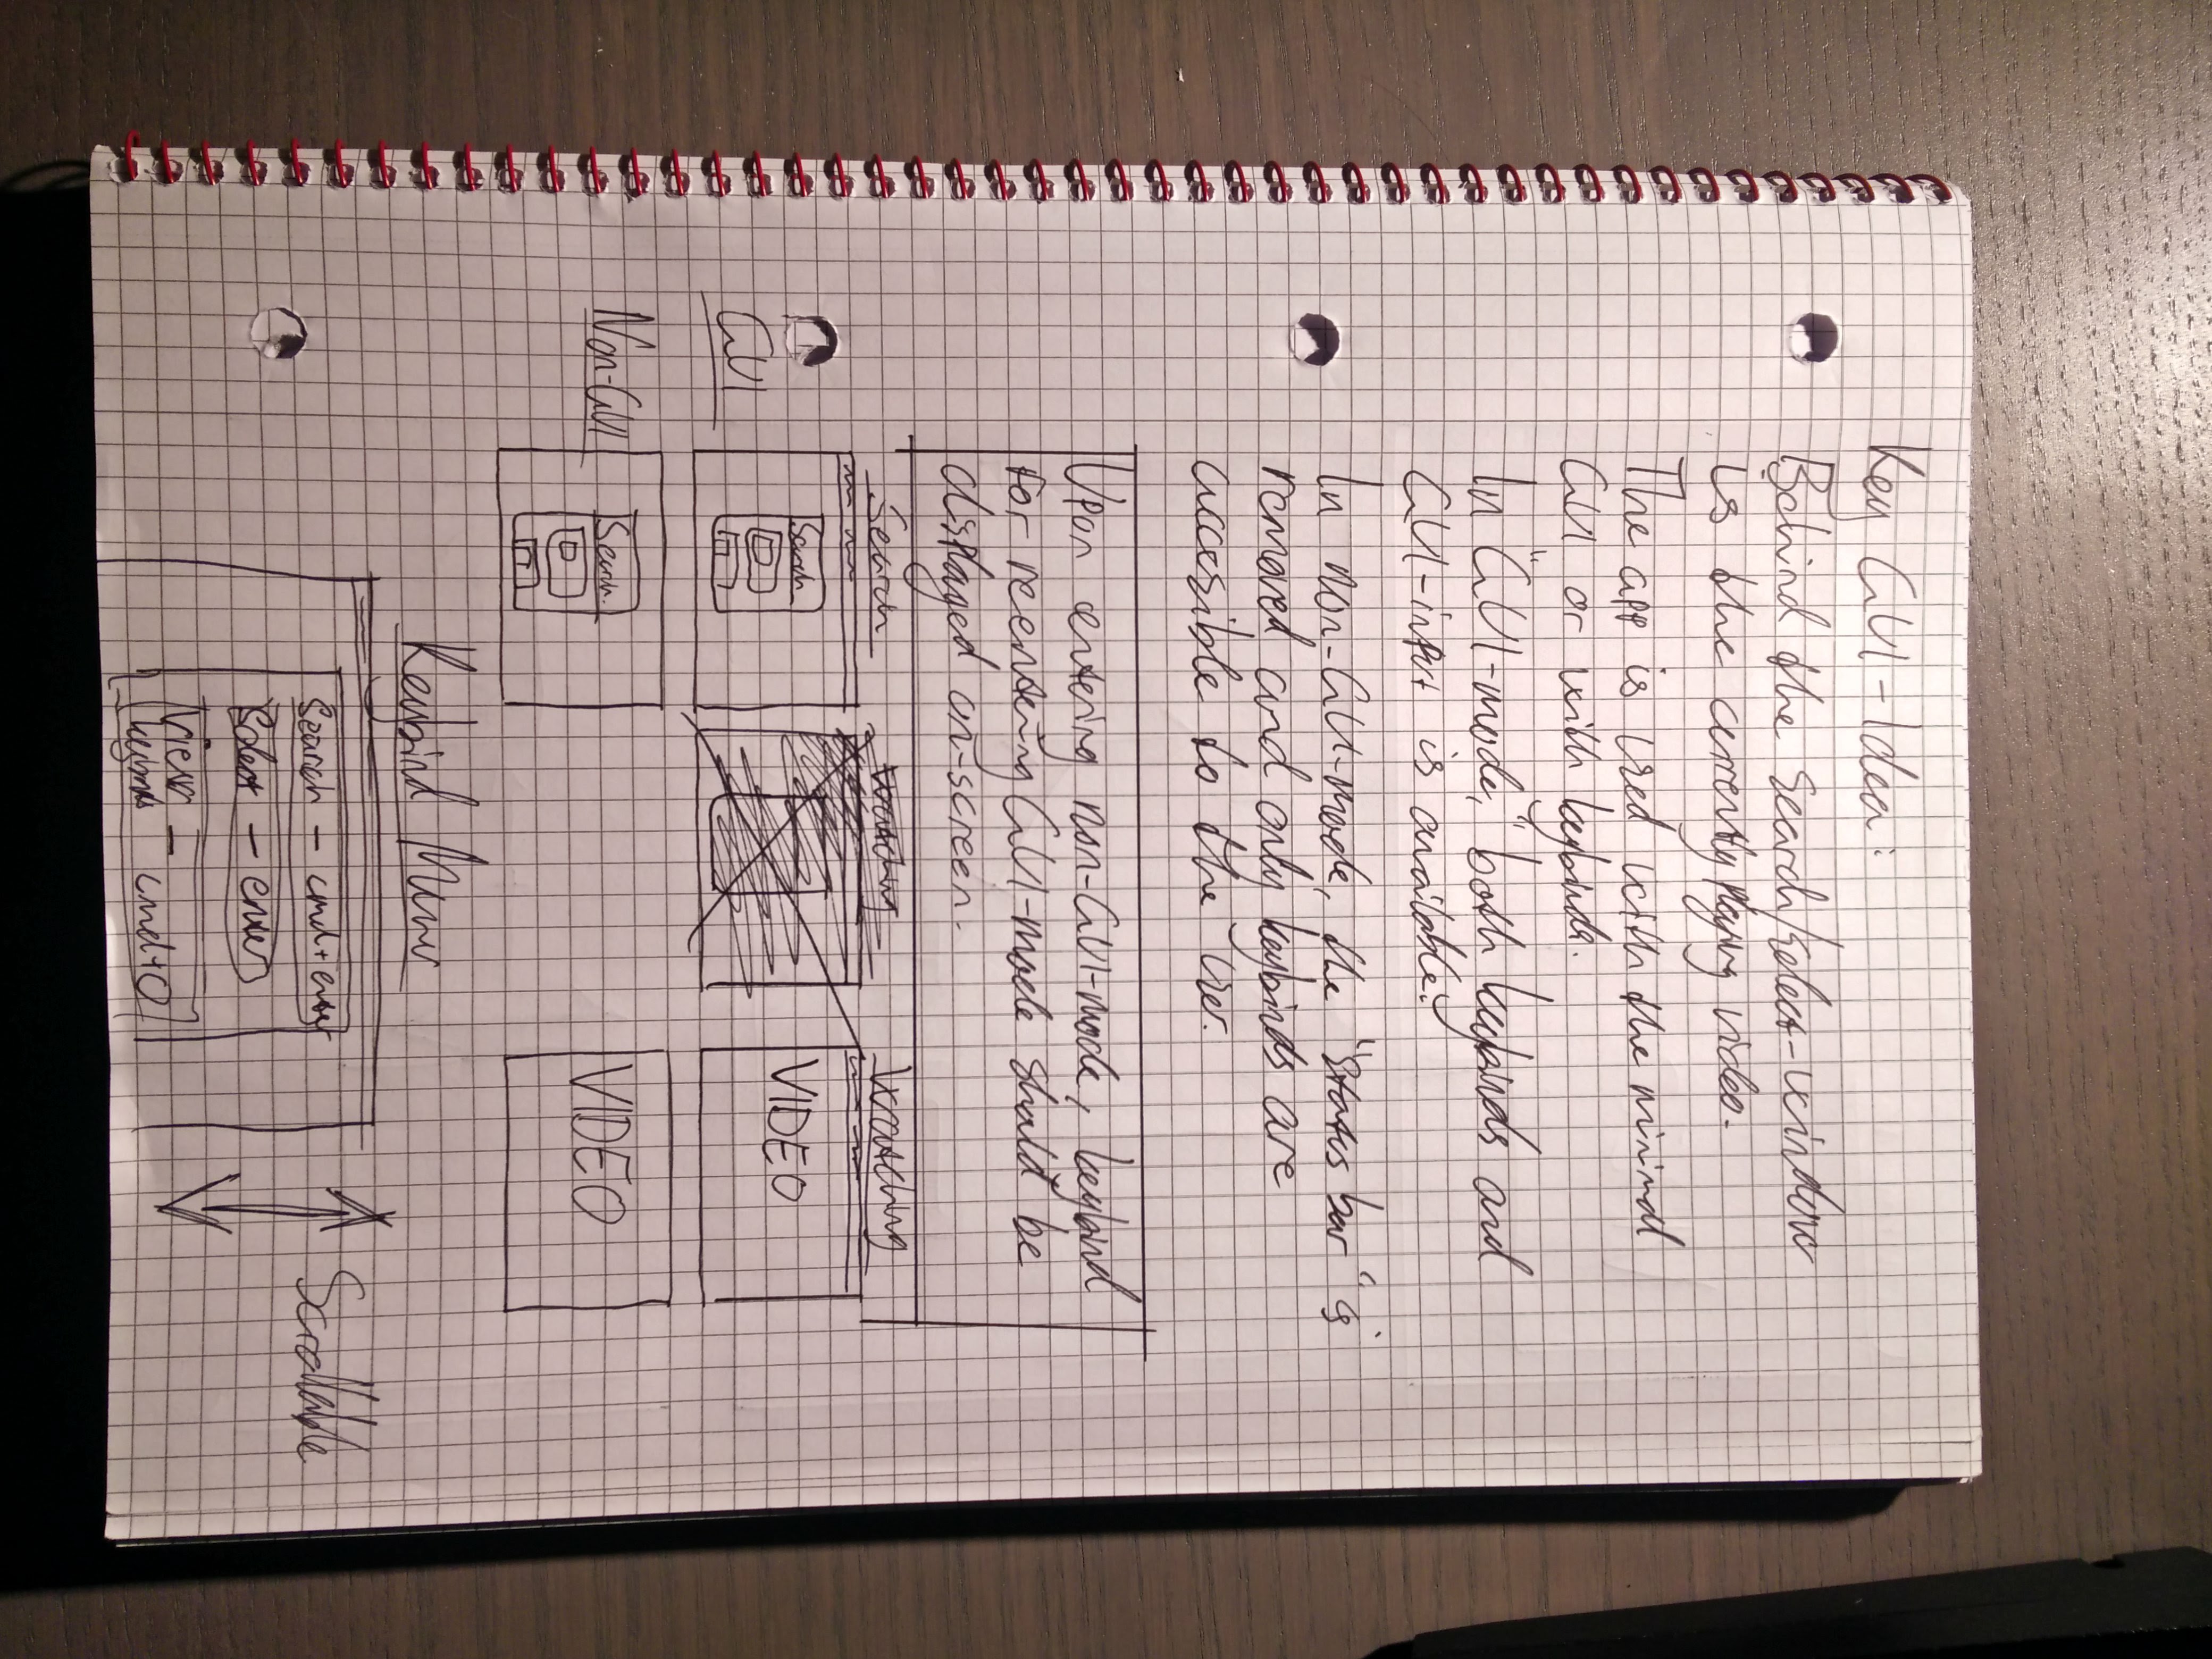 Key GUI-Idea:
Behind the Search/Select-window
is the currently playing video.
The app is used with the minimal
GUI or with keybinds.
In "GUI-mode," both keybinds and
GUI-input is available.
In non-GUI-mode, the "Status bar" is
removed and only keybinds are
accessible to the user.
Upon entering non-GUI-mode, keybind
for reentering GUI-mode should be
displayed on-screen.
Search Watching Watching
GUI
Search
VIDEO
Non-GUI
Search
VIDEO
Keybind Menu
Scrollable
Search - cmd+enter
Select - enter
View - cmd+O
keybinds